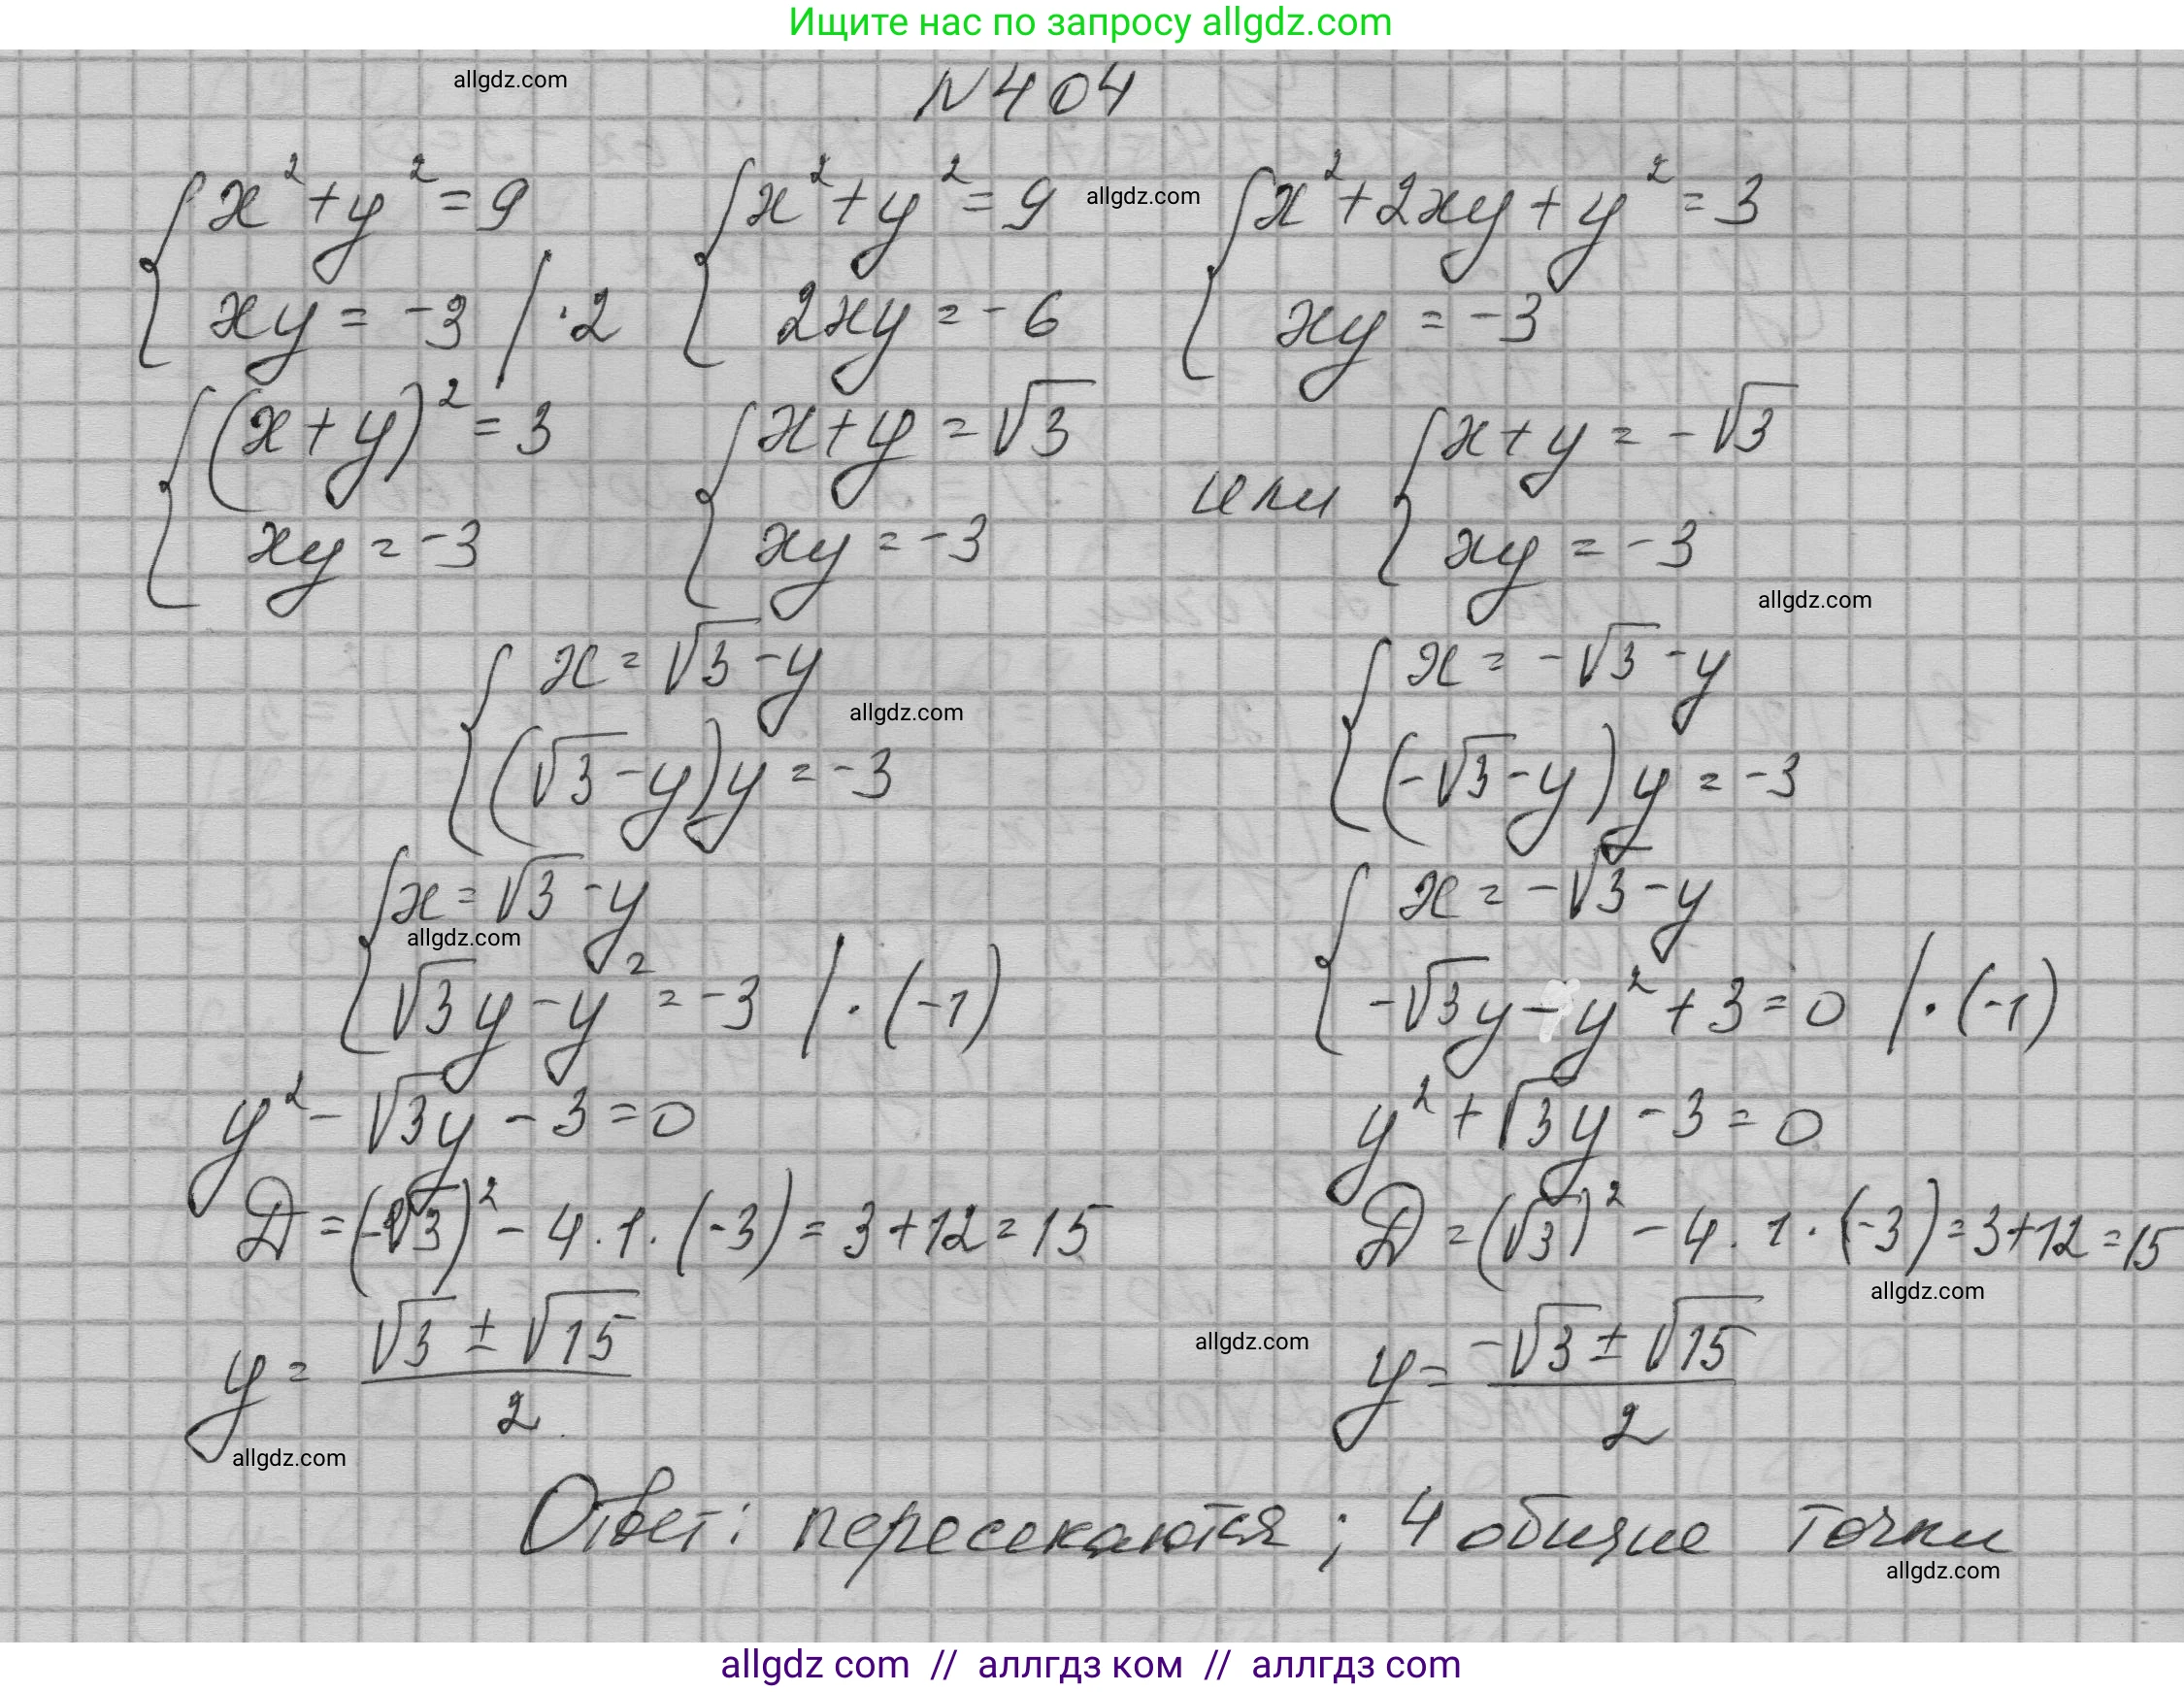 Ищите нас по запросу allgdz.com
allgdz.com
N 404
{ x² + y² = 9    { x² + y² = 9    allgdz.com    { x² + 2xy + y² = 3
xy = -3 / · 2    2xy = -6    xy = -3
{ (x + y)² = 3    { x + y = √3    или    { x + y = -√3
xy = -3    xy = -3    xy = -3
allgdz.com
{ x = √3 - y    { x = -√3 - y
allgdz.com
(√3 - y)y = -3    (-√3 - y)y = -3
{ x = √3 - y    { x = -√3 - y
allgdz.com
√3y - y² = -3 / · (-1)    -√3y - y² + 3 = 0 / · (-1)
y² - √3y - 3 = 0    y² + √3y - 3 = 0
D = (-√3)² - 4 · 1 · (-3) = 3 + 12 = 15    D = (√3)² - 4 · 1 · (-3) = 3 + 12 = 15
allgdz.com
allgdz.com
y = (√3 ± √15) / 2    y = (-√3 ± √15) / 2
allgdz.com
Ответ: пересекаются; 4 общие точки
allgdz.com
allgdz com // аллгдз ком // аллгдз com